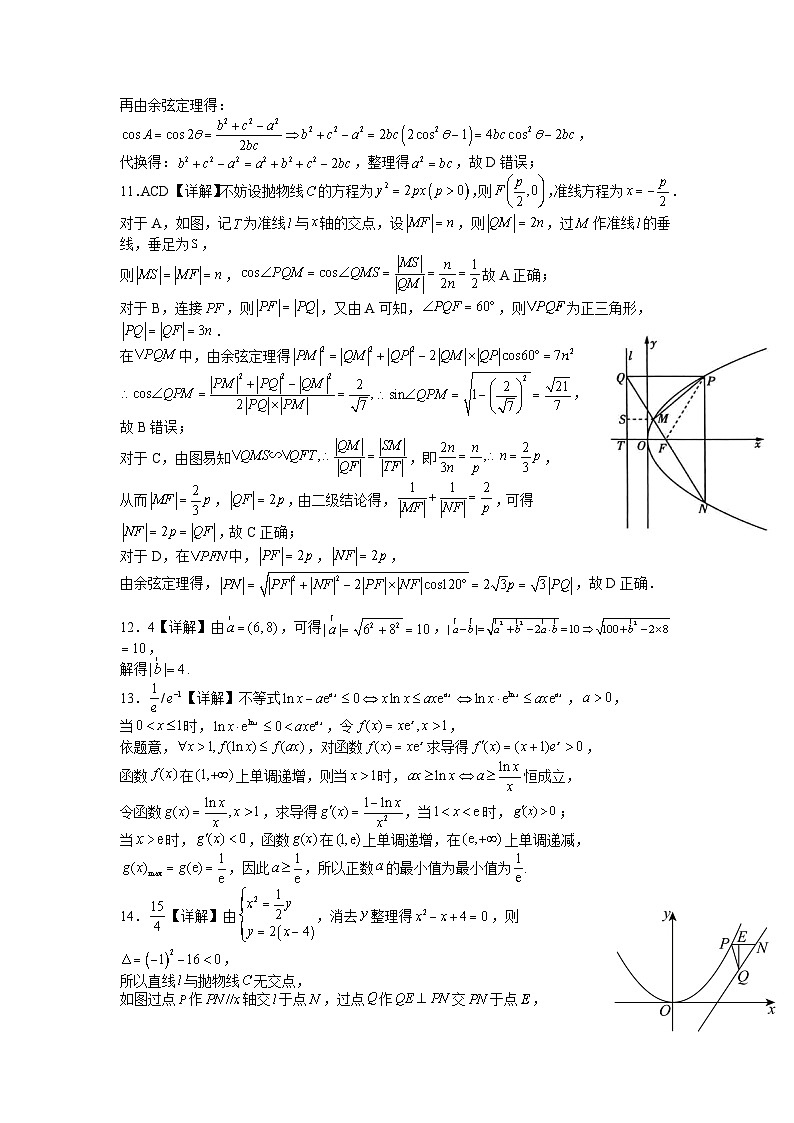 再由余弦定理得:
cos A = cos 2θ = (b² + c² − a²)/(2bc) ⇒ b² + c² − a² = 2bc(2cos²θ − 1) = 4bc cos²θ − 2bc ,
代换得: b² + c² − a² = a² + b² + c² − 2bc , 整理得 a² = bc , 故 D 错误;
11.ACD【详解】不妨设抛物线 C 的方程为 y² = 2px(p > 0) ,则 F(p/2, 0) ,准线方程为 x = −p/2 .
对于 A,如图,记 T 为准线 l 与 x 轴的交点,设 |MF| = n ,则 |QM| = 2n ,过 M 作准线 l 的垂
线,垂足为 S ,
则 |MS| = |MF| = n , cos∠PQM = cos∠QMS = |MS|/|QM| = n/2n = 1/2 故 A 正确;
对于 B,连接 PF ,则 |PF| = |PQ| ,又由 A 可知, ∠PQF = 60° ,则 VPQF 为正三角形,
|PQ| = |QF| = 3n .
在 VPQM 中,由余弦定理得 |PM|² = |QM|² + |QP|² − 2|QM|×|QP|cos60° = 7n²
∴ cos∠QPM = (|PM|² + |PQ|² − |QM|²)/(2|PQ|×|PM|) = 2/√7 ,∴ sin∠QPM = √(1 − (2/√7)²) = √21/7 ,
故 B 错误;
对于 C,由图易知 VQMS∽VQFT ,∴ |QM|/|QF| = |SM|/|TF| ,即 2n/3n = n/p ,∴ n = 2/3 p ,
从而 |MF| = 2/3 p , |QF| = 2p ,由二级结论得, 1/|MF| + 1/|NF| = 2/p ,可得
|NF| = 2p = |QF| ,故 C 正确;
对于 D,在 VPFN 中, |PF| = 2p , |NF| = 2p ,
由余弦定理得, |PN| = √(|PF|² + |NF|² − 2|PF|×|NF|cos120°) = 2√3p = √3|PQ| ,故 D 正确.
y
l
Q
P
S
M
T
O
F
x
N
12.4【详解】由 a = (6,8) ,可得 |a| = √(6² + 8²) = 10 , |a − b| = √(a² + b² − 2a·b) = 10 ⇒ √(100 + b² − 2×8
= 10 ,
解得 |b| = 4 .
13. 1/e / e⁻¹【详解】不等式 ln x − aeᵃˣ ≤ 0 ⇔ x ln x ≤ axeᵃˣ ⇔ ln x · eˡⁿˣ ≤ axeᵃˣ , a > 0 ,
当 0 < x ≤ 1 时, ln x · eˡⁿˣ ≤ 0 < axeᵃˣ ,令 f(x) = xeˣ, x > 1 ,
依题意, ∀x > 1, f(ln x) ≤ f(ax) ,对函数 f(x) = xeˣ 求导得 f′(x) = (x + 1)eˣ > 0 ,
函数 f(x) 在 (1, +∞) 上单调递增,则当 x > 1 时, ax ≥ ln x ⇔ a ≥ ln x/x 恒成立,
令函数 g(x) = ln x/x , x > 1 ,求导得 g′(x) = (1 − ln x)/x² ,当 1 < x < e 时, g′(x) > 0 ;
当 x > e 时, g′(x) < 0 ,函数 g(x) 在 (1,e) 上单调递增,在 (e, +∞) 上单调递减,
g(x)max = g(e) = 1/e ,因此 a ≥ 1/e ,所以正数 a 的最小值为最小值为 1/e .
14. 15/4【详解】由 { x² = 1/2 y , y = 2(x − 4) ,消去 y 整理得 x² − x + 4 = 0 ,则
Δ = (−1)² − 16 < 0 ,
所以直线 l 与抛物线 C 无交点,
如图过点 P 作 PN//x 轴交 l 于点 N ,过点 Q 作 QE ⊥ PN 交 PN 于点 E ,
y
P
E
N
Q
O
x